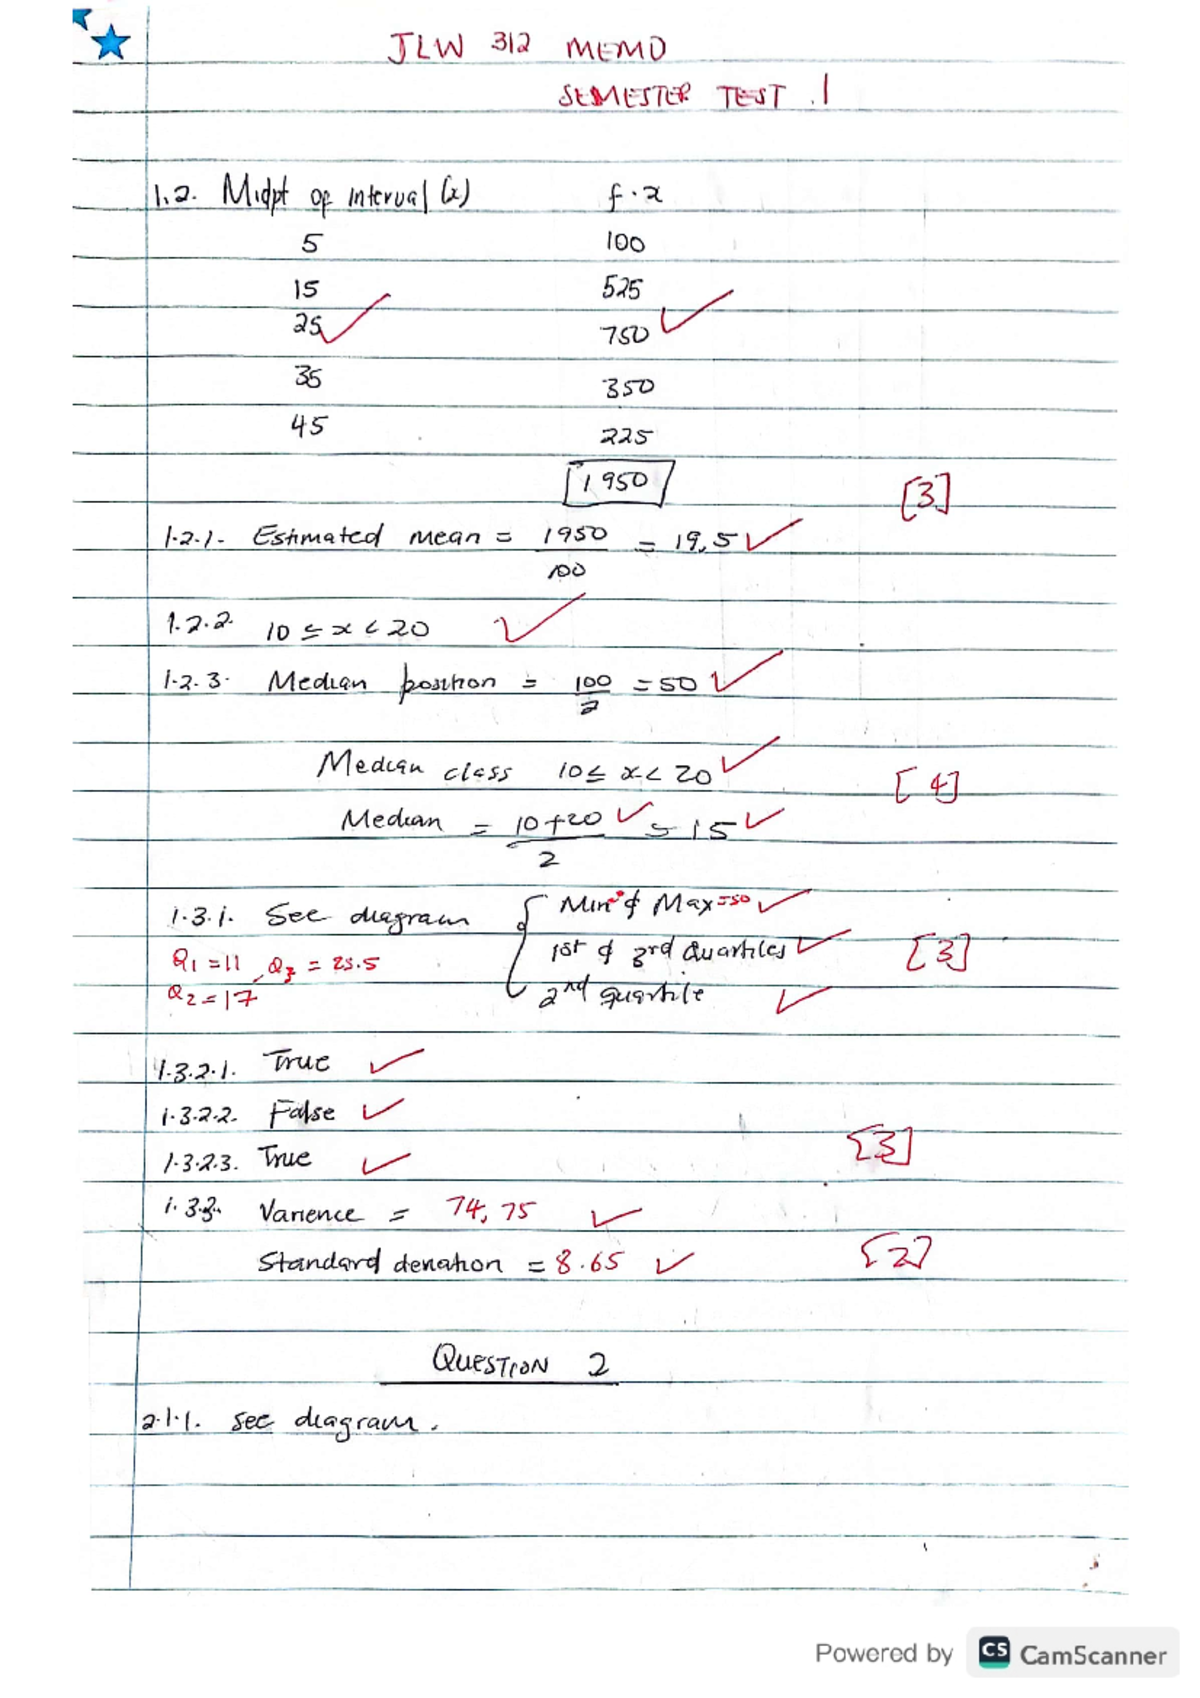 JLW 312 MEMO
SEMESTER TEST .1
1.2. Midpt of interval (x) f.x
5 100
15 525
25 750
35 350
45 225
1950 [3]
1.2.1. Estimated mean = 1950/100 = 19,5
1.2.2. 10 ≤ x < 20
1.2.3. Median position = 100/2 = 50
Median class 10 ≤ x < 20 [4]
Median = 10+20/2 = 15
1.3.1. See diagram { Min & Max=50
Q1 = 11, Q3 = 23.5 1st & 3rd Quartiles [3]
Q2 = 17 2nd quartile
1.3.2.1. True
1.3.2.2. False
1.3.2.3. True [3]
1.3.3. Varience = 74,75
Standard deviation = 8.65 [2]
QUESTION 2
2.1.1. see diagram.
Powered by CS CamScanner